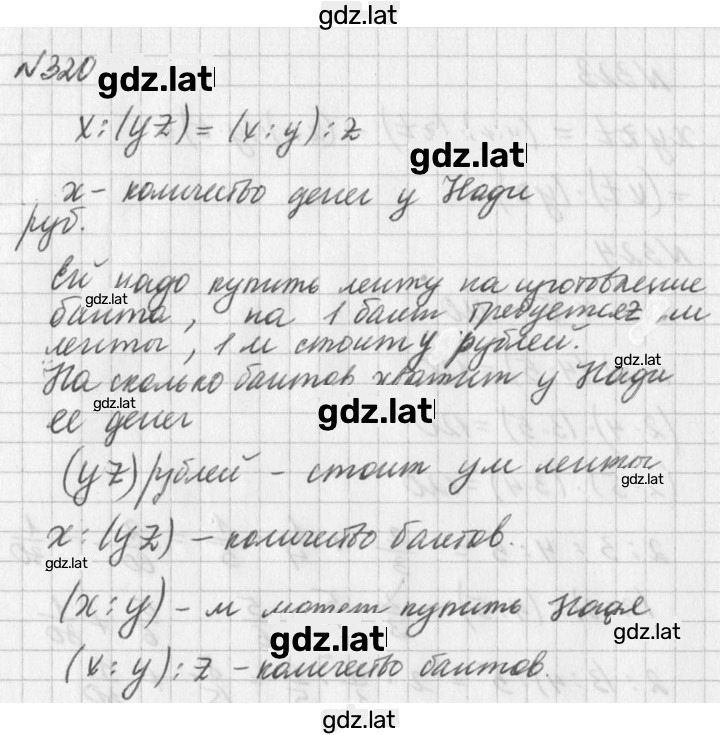 gdz.lat
№320
gdz.lat
x:(yz)=(x:y):z
gdz.lat
x - количество денег у Нади
руб.
Ей надо купить ленту на изготовление
gdz.lat
банта, на 1 бант требуется z м
ленты, 1 м стоит y рублей.
gdz.lat
На сколько бантов хватит у Нади
gdz.lat
ее денег
gdz.lat
(yz) рублей - стоит y м ленты
gdz.lat
x:(yz) - количество бантов.
gdz.lat
(x:y) - м может купить Надя
gdz.lat
gdz.lat
(x:y):z - количество бантов.
gdz.lat